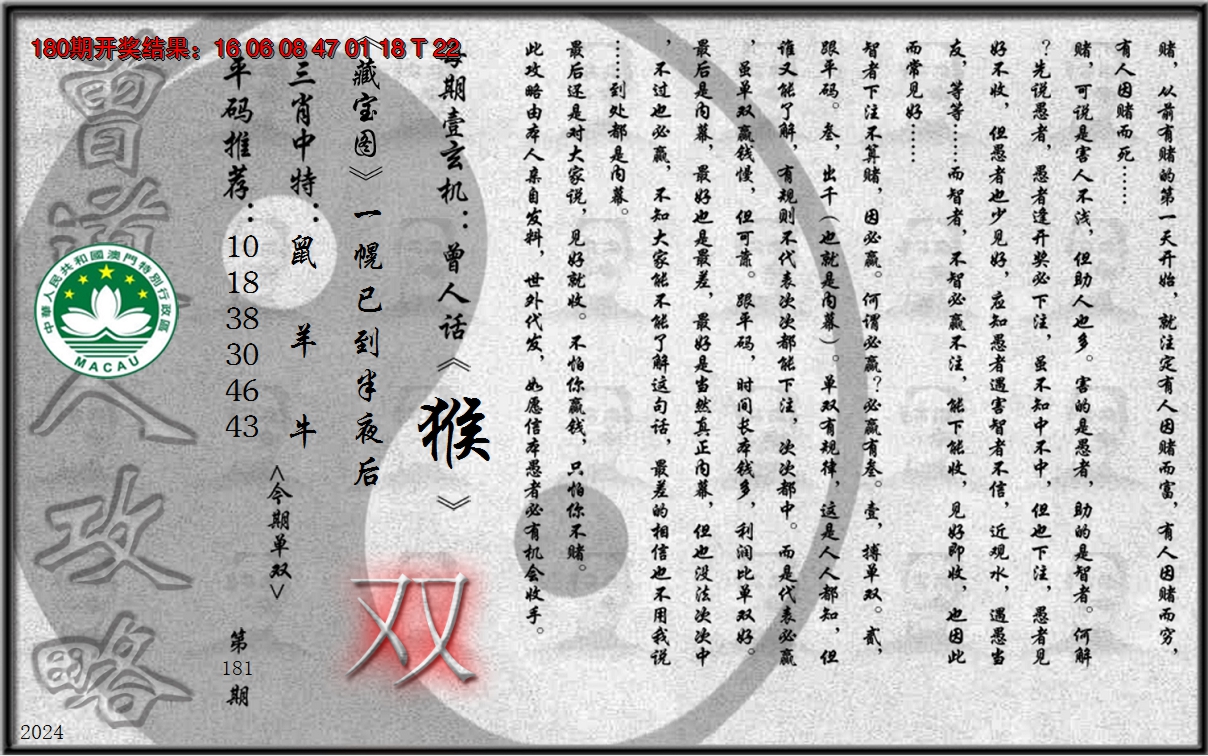 180期开奖结果：16 06 08 47 01 18 T 22
赌，从前有赌的第一天开始，就注定有人因赌而富，有人因赌而穷，
有人因赌而死……
赌，可说是害人不浅，但助人也多。害的是愚者，助的是智者。何解
？先说愚者，愚者逢开奖必下注，虽不知中不中，但也下注，愚者见
好不收，但愚者也少见好，应知愚者遇害智者不信，近观水，遇愚当
友，等等……而智者，不智必赢不注，能下能收，见好即收，也因此
而常见好……
智者下注不算赌，因必赢。何谓必赢？必赢有叁。壹，搏单双。贰，
跟平码。叁，出千（也就是内幕）。单双有规律，这是人人都知，但
谁又能了解，有规则不代表次次都能下注，次次都中。而是代表必赢
，虽单双赢钱慢，但可靠。跟平码，时间长本钱多，利润比单双好。
最后是内幕，最好也是最差，最好是当然真正内幕，但也没法次次中
，不过也必赢，不知大家能不能了解这句话，最差的相信也不用我说
……到处都是内幕。
最后还是对大家说，见好就收。不怕你赢钱，只怕你不赌。
此攻略由本人亲自发料，世外代发，如愿信本愚者必有机会收手。
每期壹玄机：曾人话《猴》
《藏宝图》一幌已到半夜后
双
三肖中特：鼠 羊 牛
<今期单双>
平码推荐：
10
18
38
30
46
43
第
181
期
曾道人攻略
中華人民共和國澳門特別行政區
MACAU
2024